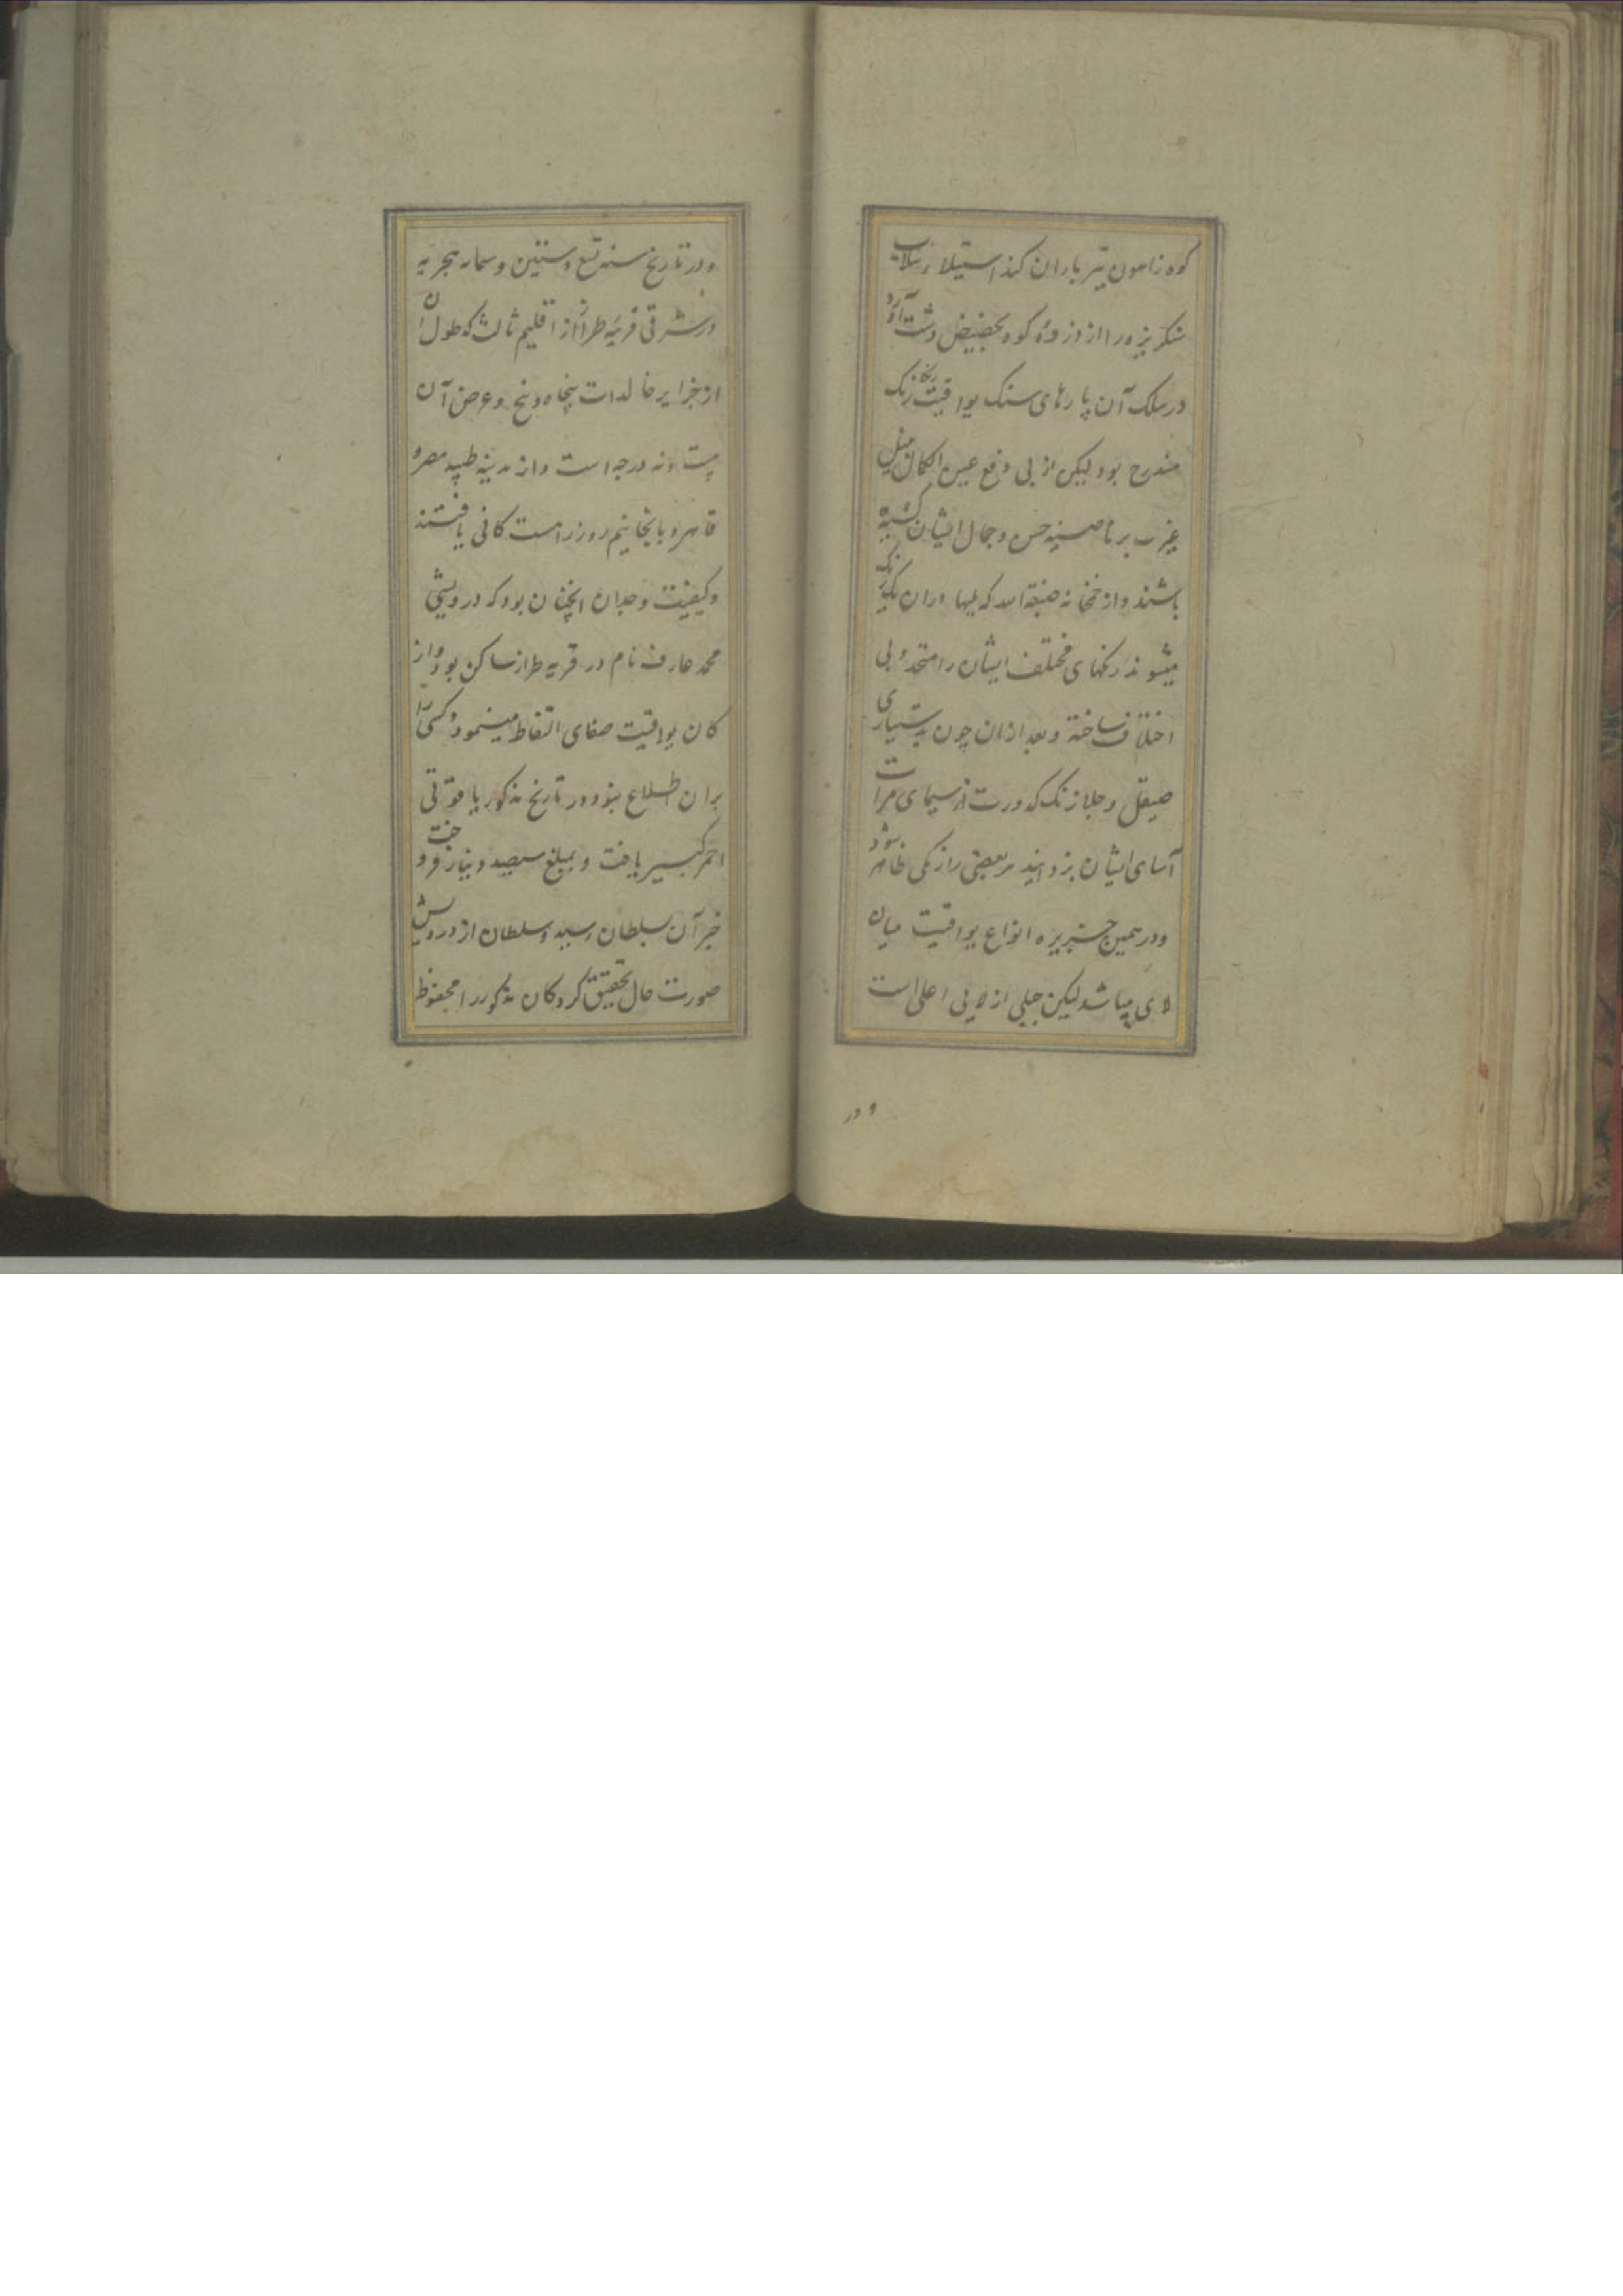 کوه زاهون تیر باران کند استیلاء سیلاب
سنکریزه را از ذروهٔ کوه بحضیض دشت آورد
در سلک آن پارهای سنک یواقیت رنکارنک
مندرج بود لیکن از پی دفع عین الکمال نیل
بر ناصیه حسن و جمال ایشان کشیده
باشند و از خمخانه صبغة الله که
میشوند رنکهای مختلف ایشان را متحد و بی
اختلاف ساخته و بعد ازان چون بدستیاری
صیقل و جلا زنک کدورت از سیمای مرات
آسای ایشان بزدایند هر بعضی را رنکی ظاهر شود
و در همین جزیره انواع یواقیت میان
لای میباشد لیکن جبلی از لایی اعلی است
و در
و در تاریخ سنه تسع و ستین و سمایه هجریه
در شرقی قریهٔ طراز از اقلیم ثالث که طول آن
از جزایر خالدات پنجاه و پنج و عرض آن
بیست و نه درجه است و از مدینه طیبه مصر و
قاهره بانجا نیم روز راهست کانی یافتند
و کیفیت وجدان انچنان بود که درویشی
محمد عارف نام در قریه طراز ساکن بود و از
کان یواقیت صفای التقاط مینمود و کسی را
بران اطلاع نبود و در تاریخ مذکور یاقوتی
احمر کبیر یافت و بمبلغ سیصد دینار فروخت
خبر آن بسلطان رسید و سلطان از درویش
صورت حال تحقیق کرد و کان مذکور را محفوظ